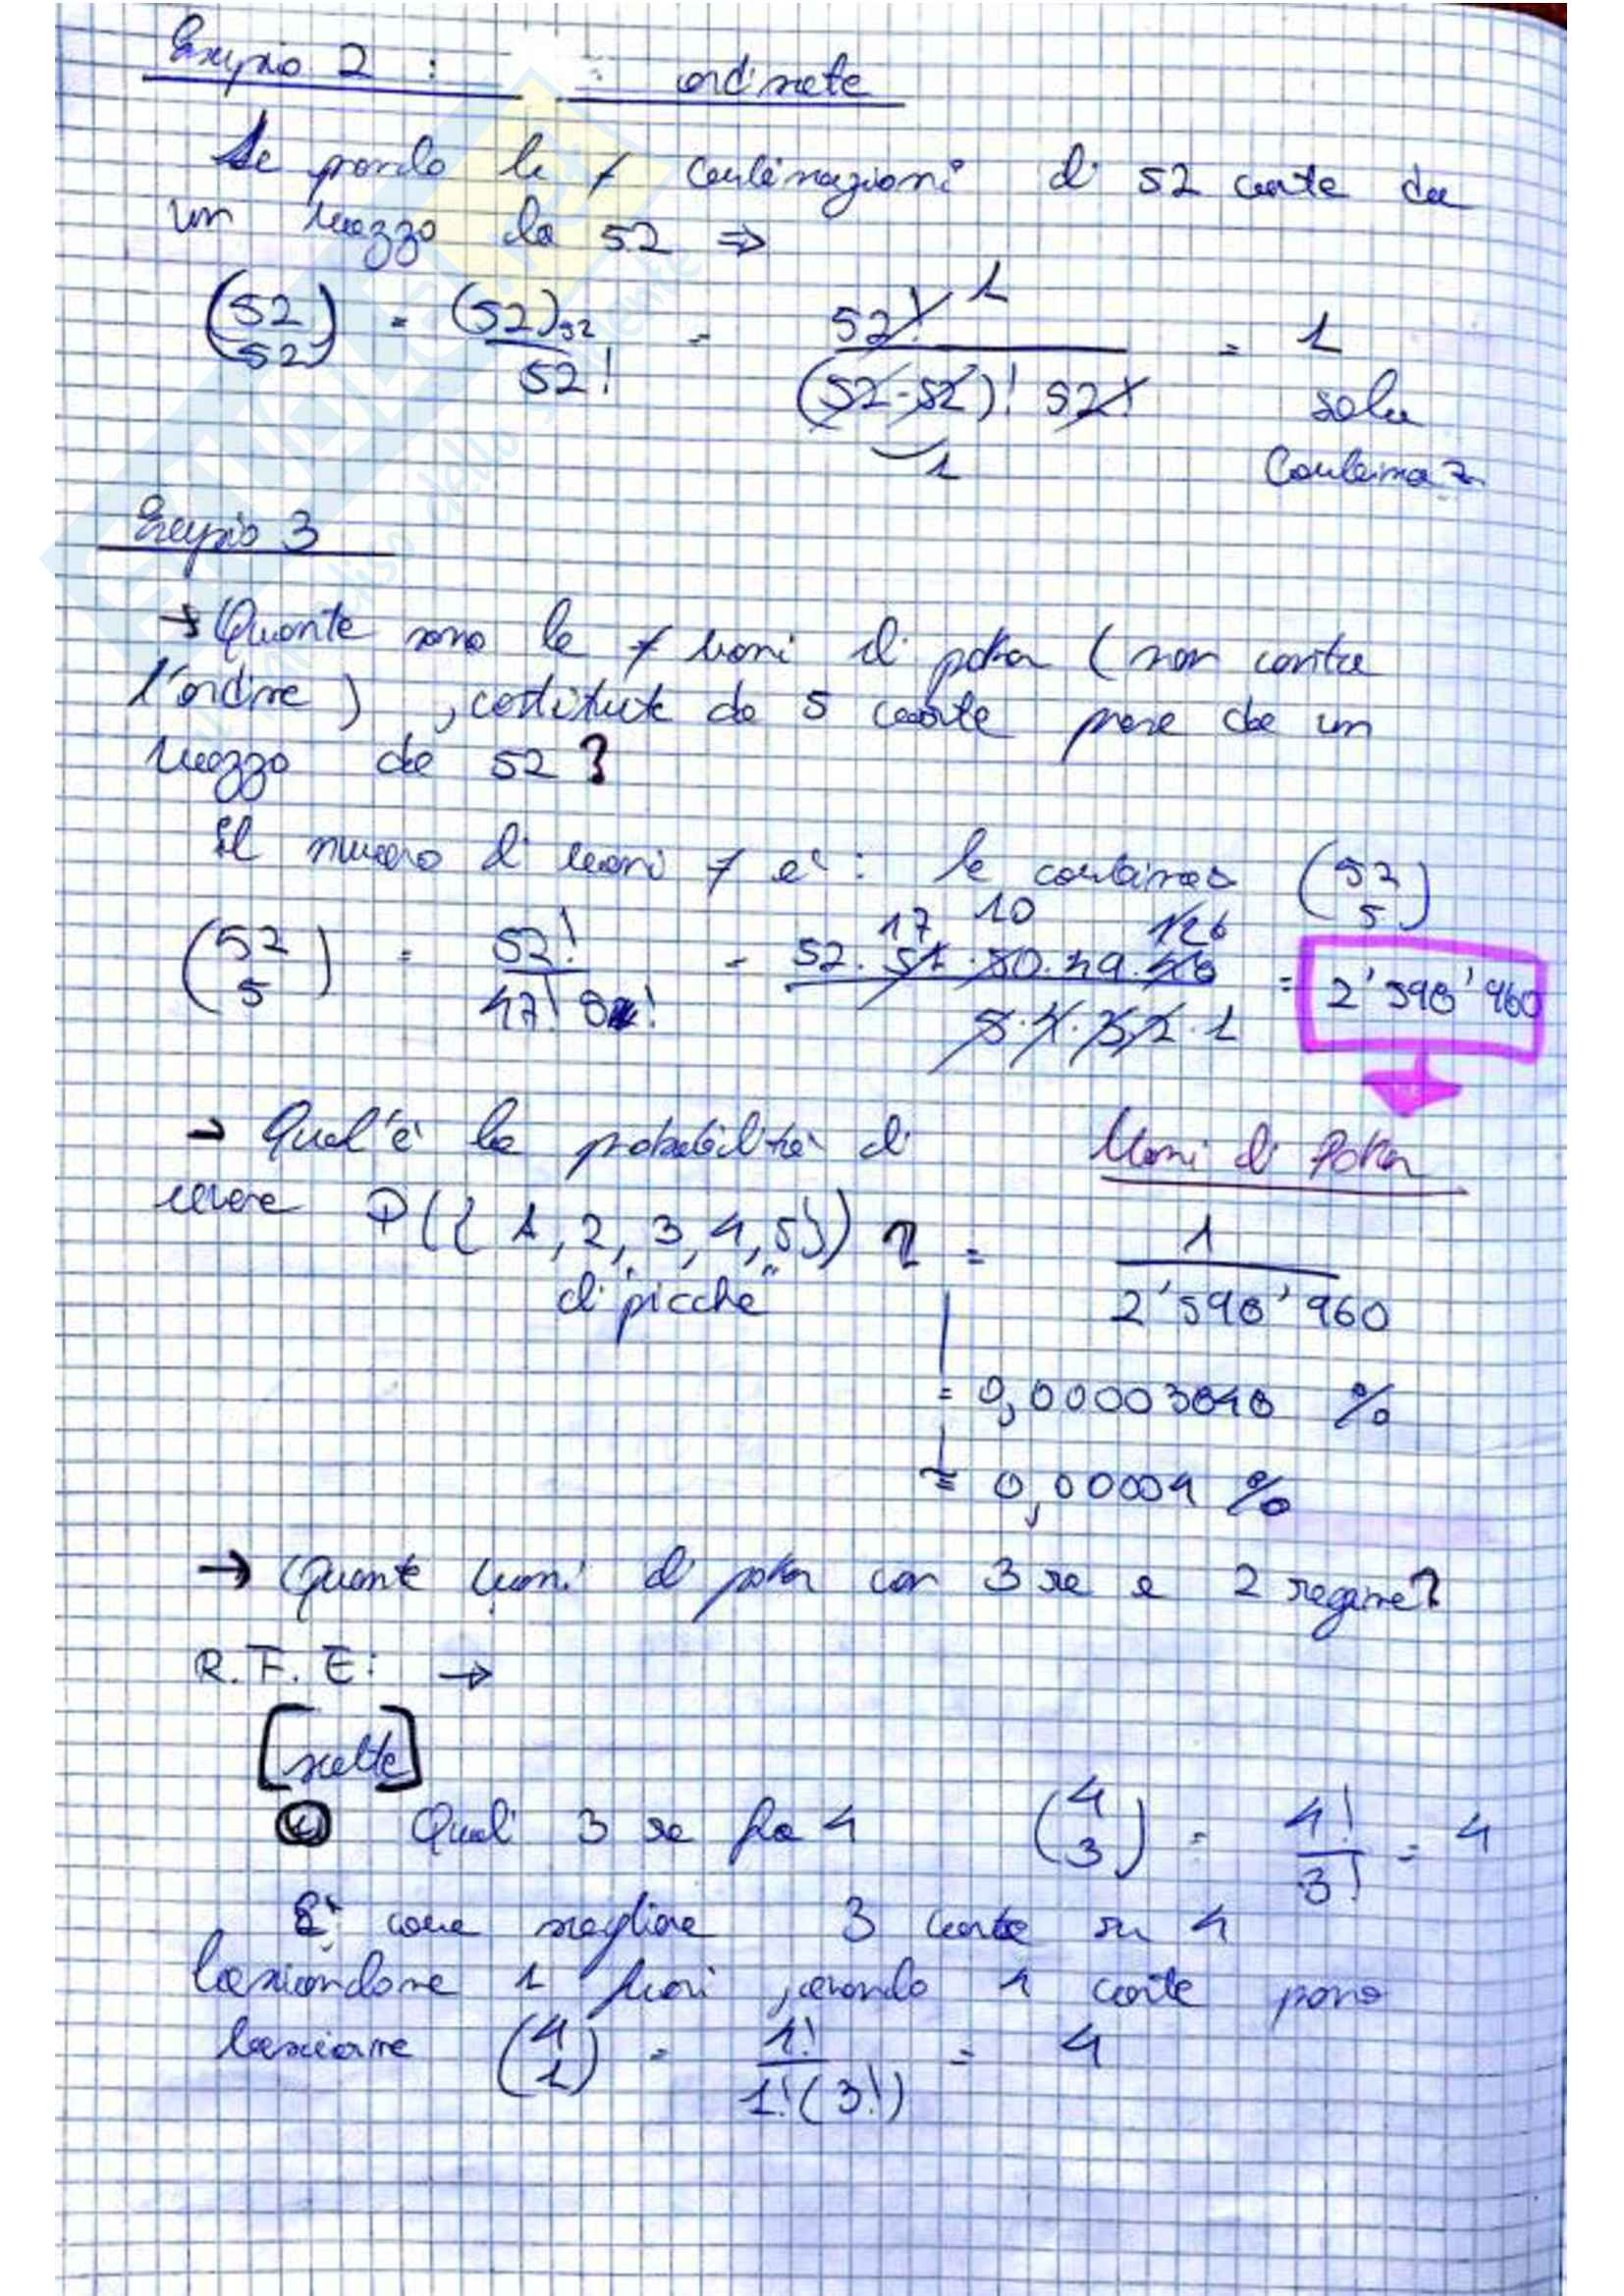 Esempio 2 : : ordinate
Se prendo le ≠ combinazioni di 52 carte da
un mazzo da 52 ⇒
(52 52) = (52)52 / 52! = 52! 1 / (52-52)! 52! = 1
1
sola
combinaz
Esempio 3
→ Quante sono le ≠ mani di poker (non conta
l'ordine), costituite da 5 carte prese da un
mazzo da 52?
Il numero di mani ≠ è: le combinaz (52 5)
17 10 12 6
(52 5) = 52! / 47! 5! = 52·51·50·49·48 / 5·4·3·2·1 = 2'598'960
→ Qual'è la probabilità di
Mani di Poker
avere P({1,2,3,4,5}) ? = 1 / 2'598'960
di "picche"
= 0,00003848 %
≈ 0,00004 %
→ Quante mani di poker con 3 re e 2 regine?
R.F.E: →
[scelte]
Quali 3 re fra 4 (4 3) = 4! / 3! = 4
È come scegliere 3 carte su 4
lasciandone 1 fuori, avendo 4 carte posso
lasciarne (4 1) = 4! / 1!(3!) = 4